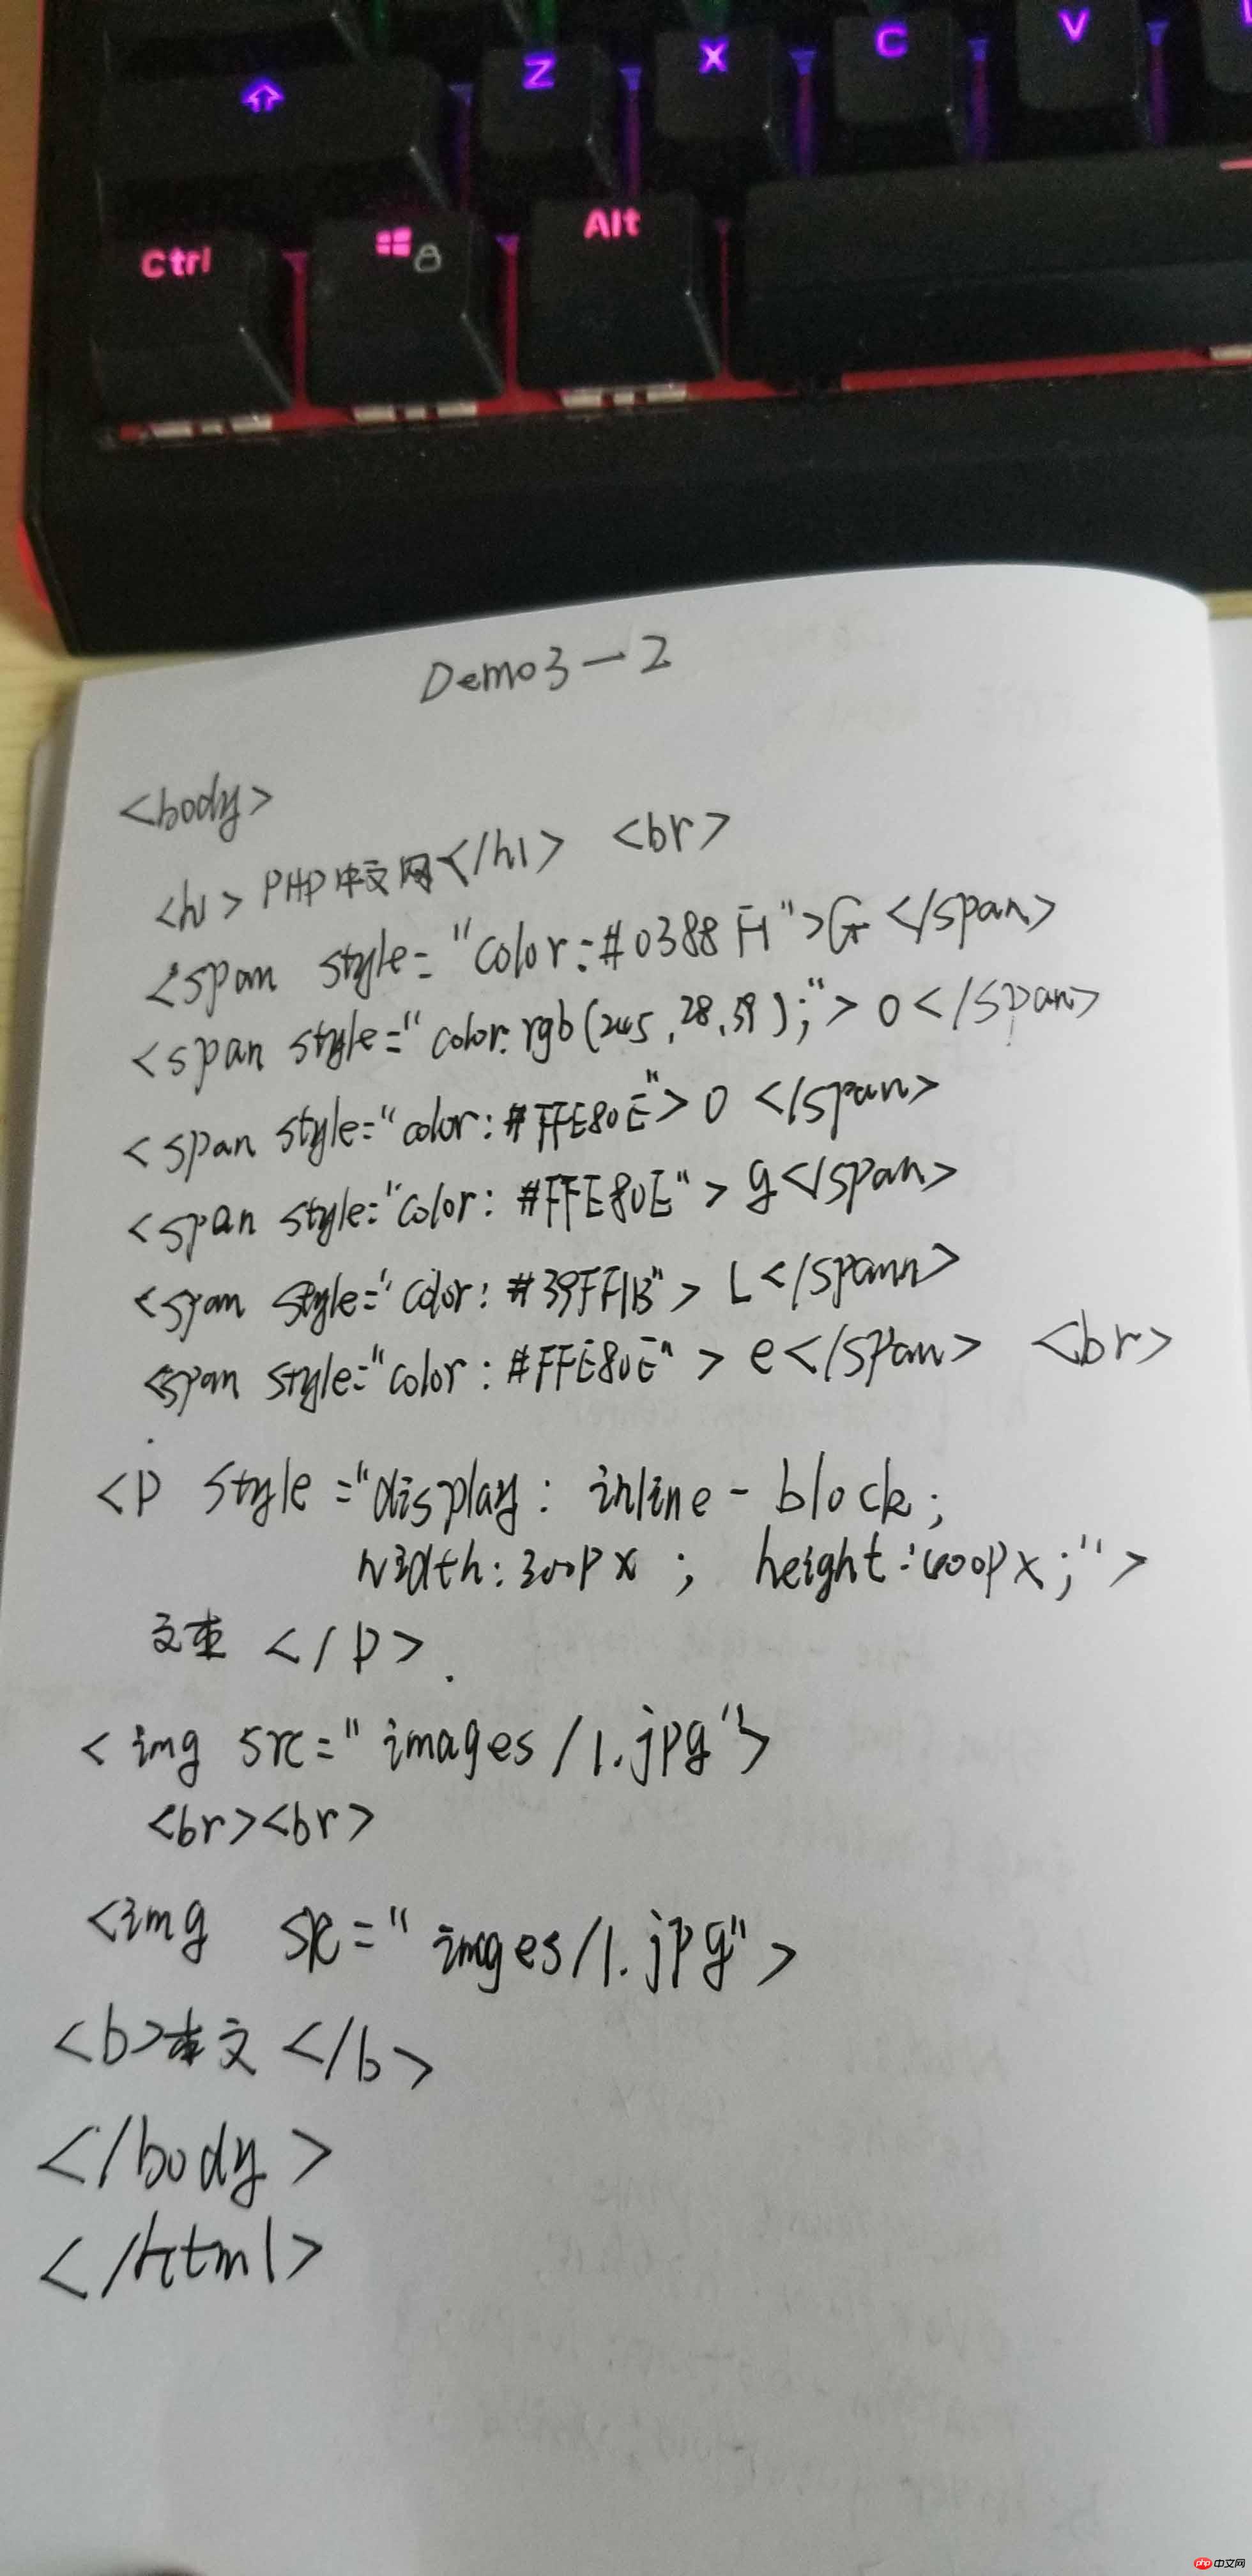 Z X C V
Ctrl Alt
Demo3-2
<body>
<h1>PHP中文网</h1> <br>
<span style="color:#0388FF">G</span>
<span style="color:rgb(245,28,39);">o</span>
<span style="color:#FFE80E">o</span>
<span style="color:#FFE80E">g</span>
<span style="color:#39FF1B">L</spann>
<span style="color:#FFE80E">e</span> <br>
<p style="display: inline-block;
width:300px; height:600px;">
文本 </p>
<img src="images/1.jpg">
<br><br>
<img src="imges/1.jpg">
<b>本文</b>
</body>
</html>
php 中文网